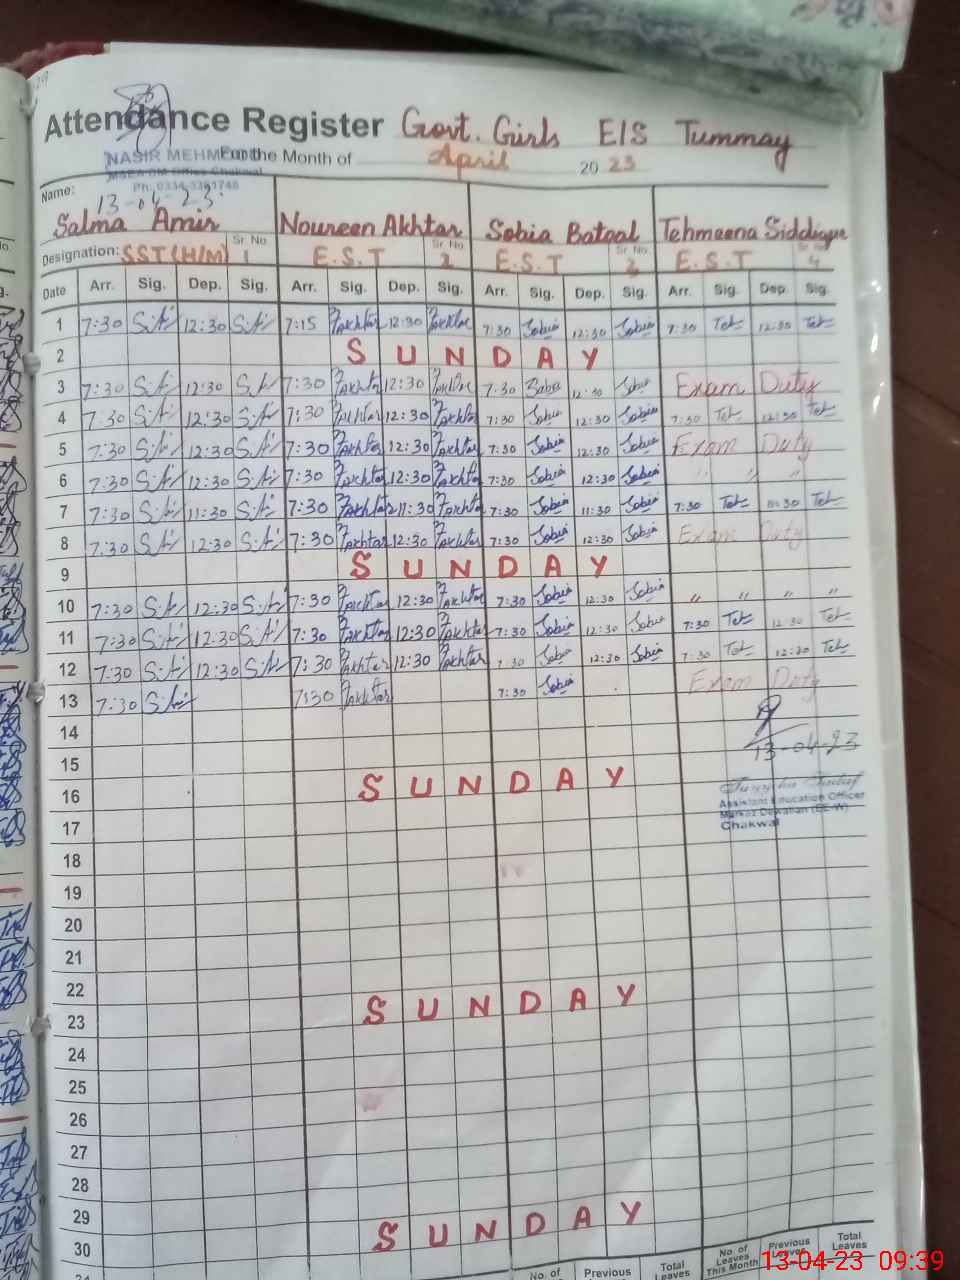 Attendance Register Govt. Girls E/S Tummay
For the Month of April 2023
NASIR MEHM
Ph: 0334-
13-04-23
Name: Salma Amir Noureen Akhtar Sobia Batool Tehmeena Siddique
Designation: SST (H/M) Sr No. 1 E.S.T Sr No. 2 E.S.T Sr No. 3 E.S.T Sr No. 4
Date Arr. Sig. Dep. Sig. Arr. Sig. Dep. Sig. Arr. Sig. Dep. Sig. Arr. Sig. Dep. Sig.
1 7:30 S.A 12:30 S.A 7:15 Fakhtar 12:30 Fakhtar 7:30 Sobia 12:30 Sobia 7:30 Teh 12:30 Teh
2 SUNDAY
3 7:30 S.A 12:30 S.A 7:30 Fakhtar 12:30 Fakhtar 7:30 Sobia 12:30 Sobia Exam Duty
4 7:30 S.A 12:30 S.A 7:30 Fakhtar 12:30 Fakhtar 7:30 Sobia 12:30 Sobia 7:30 Teh 12:30 Teh
5 7:30 S.A 12:30 S.A 7:30 Fakhtar 12:30 Fakhtar 7:30 Sobia 12:30 Sobia Exam Duty
6 7:30 S.A 12:30 S.A 7:30 Fakhtar 12:30 Fakhtar 7:30 Sobia 12:30 Sobia " " "
7 7:30 S.A 11:30 S.A 7:30 Fakhtar 11:30 Fakhtar 7:30 Sobia 11:30 Sobia 7:30 Teh 11:30 Teh
8 7:30 S.A 12:30 S.A 7:30 Fakhtar 12:30 Fakhtar 7:30 Sobia 12:30 Sobia Exam Duty
9 SUNDAY
10 7:30 S.A 12:30 S.A 7:30 Fakhtar 12:30 Fakhtar 7:30 Sobia 12:30 Sobia " " " "
11 7:30 S.A 12:30 S.A 7:30 Fakhtar 12:30 Fakhtar 7:30 Sobia 12:30 Sobia 7:30 Teh 12:30 Teh
12 7:30 S.A 12:30 S.A 7:30 Fakhtar 12:30 Fakhtar 7:30 Sobia 12:30 Sobia 7:30 Teh 12:30 Teh
13 7:30 S.A 7:30 Fakhtar 7:30 Sobia Exam Duty
14
13-04-23
15
16 SUNDAY
Assistant Education Officer
Markaz (EE-W)
Chakwal
17
18
19
20
21
22
23 SUNDAY
24
25
26
27
28
29
30 SUNDAY
No. of Previous Total Leaves No. of Leaves This Month Previous Leaves Total Leaves
13-04-23 09:39